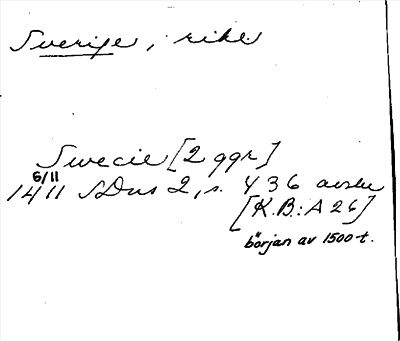 Sverige, rike
Swecie [2 ggr]
6/11
1411 SDns 2, s. 436 avskr
[K.B.: A 26]
början av 1500-t.